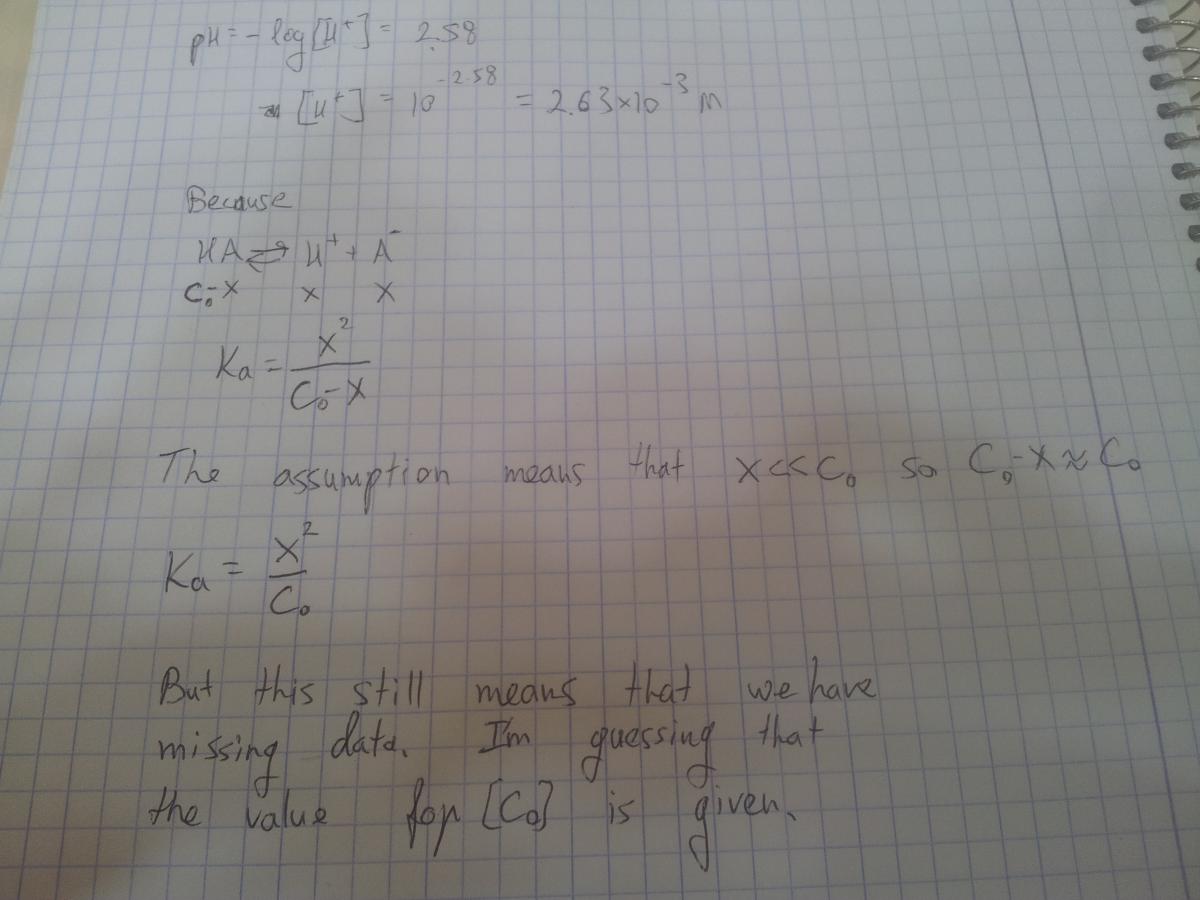 pH = - log [H⁺] = 2.58
[H⁺] = 10⁻²·⁵⁸ = 2.63×10⁻³ M
Because
HA ⇌ H⁺ + A⁻
C₀-x x x
Ka = x² / C₀-x
The assumption means that x<<C₀ so C₀-x≈C₀
Ka = x² / C₀
But this still means that we have
missing data. I'm guessing that
the value for [C₀] is given.